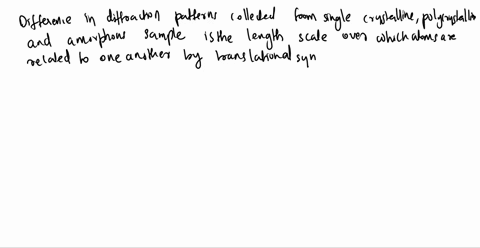 Difference in diffraction patterns collected from single crystalline, polycrystallin
and amorphous sample is the length scale over which atoms are
related to one another by translational sym